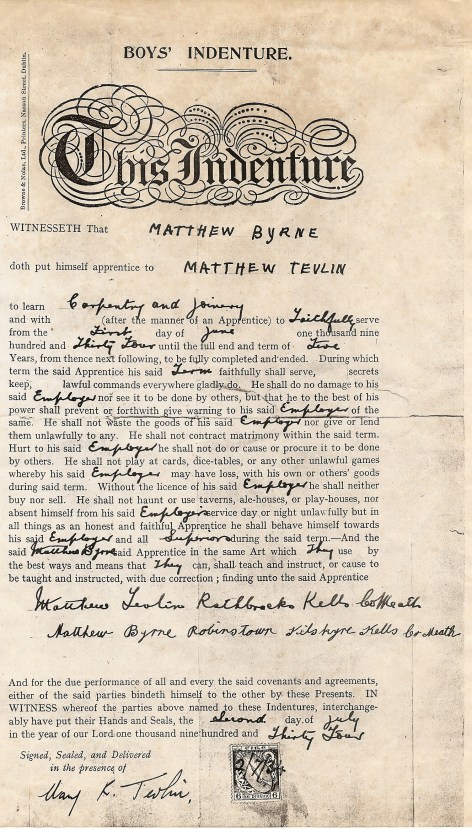 BOYS' INDENTURE.
Browne & Nolan, Ltd., Printers, Nassau Street, Dublin.
This Indenture
WITNESSETH That MATTHEW BYRNE
doth put himself apprentice to MATTHEW TEVLIN
to learn Carpentry and Joinery
and with (after the manner of an Apprentice) to Faithfully serve
from the First day of June one thousand nine
hundred and Thirty Four until the full end and term of Five
Years, from thence next following, to be fully completed and ended. During which
term the said Apprentice his said Term faithfully shall serve, secrets
keep, lawful commands everywhere gladly do. He shall do no damage to his
said Employer nor see it to be done by others, but that he to the best of his
power shall prevent or forthwith give warning to his said Employer of the
same. He shall not waste the goods of his said Employer nor give or lend
them unlawfully to any. He shall not contract matrimony within the said term.
Hurt to his said Employer he shall not do or cause or procure it to be done
by others. He shall not play at cards, dice-tables, or any other unlawful games
whereby his said Employer may have loss, with his own or others' goods
during said term. Without the licence of his said Employer he shall neither
buy nor sell. He shall not haunt or use taverns, ale-houses, or play-houses, nor
absent himself from his said Employers service day or night unlawfully but in
all things as an honest and faithful Apprentice he shall behave himself towards
his said Employer and all Superiors during the said term.—And the
said Matthew Byrne said Apprentice in the same Art which They use by
the best ways and means that They can, shall teach and instruct, or cause to
be taught and instructed, with due correction ; finding unto the said Apprentice
Matthew Tevlin Rathbracks Kells Co Meath
Matthew Byrne Robinstown Kilskyre Kells Co Meath
And for the due performance of all and every the said covenants and agreements,
either of the said parties bindeth himself to the other by these Presents. IN
WITNESS whereof the parties above named to these Indentures, interchange-
ably have put their Hands and Seals, the second day of July
in the year of our Lord one thousand nine hundred and Thirty Four
Signed, Sealed, and Delivered
in the presence of
Mary K. Tevlin.